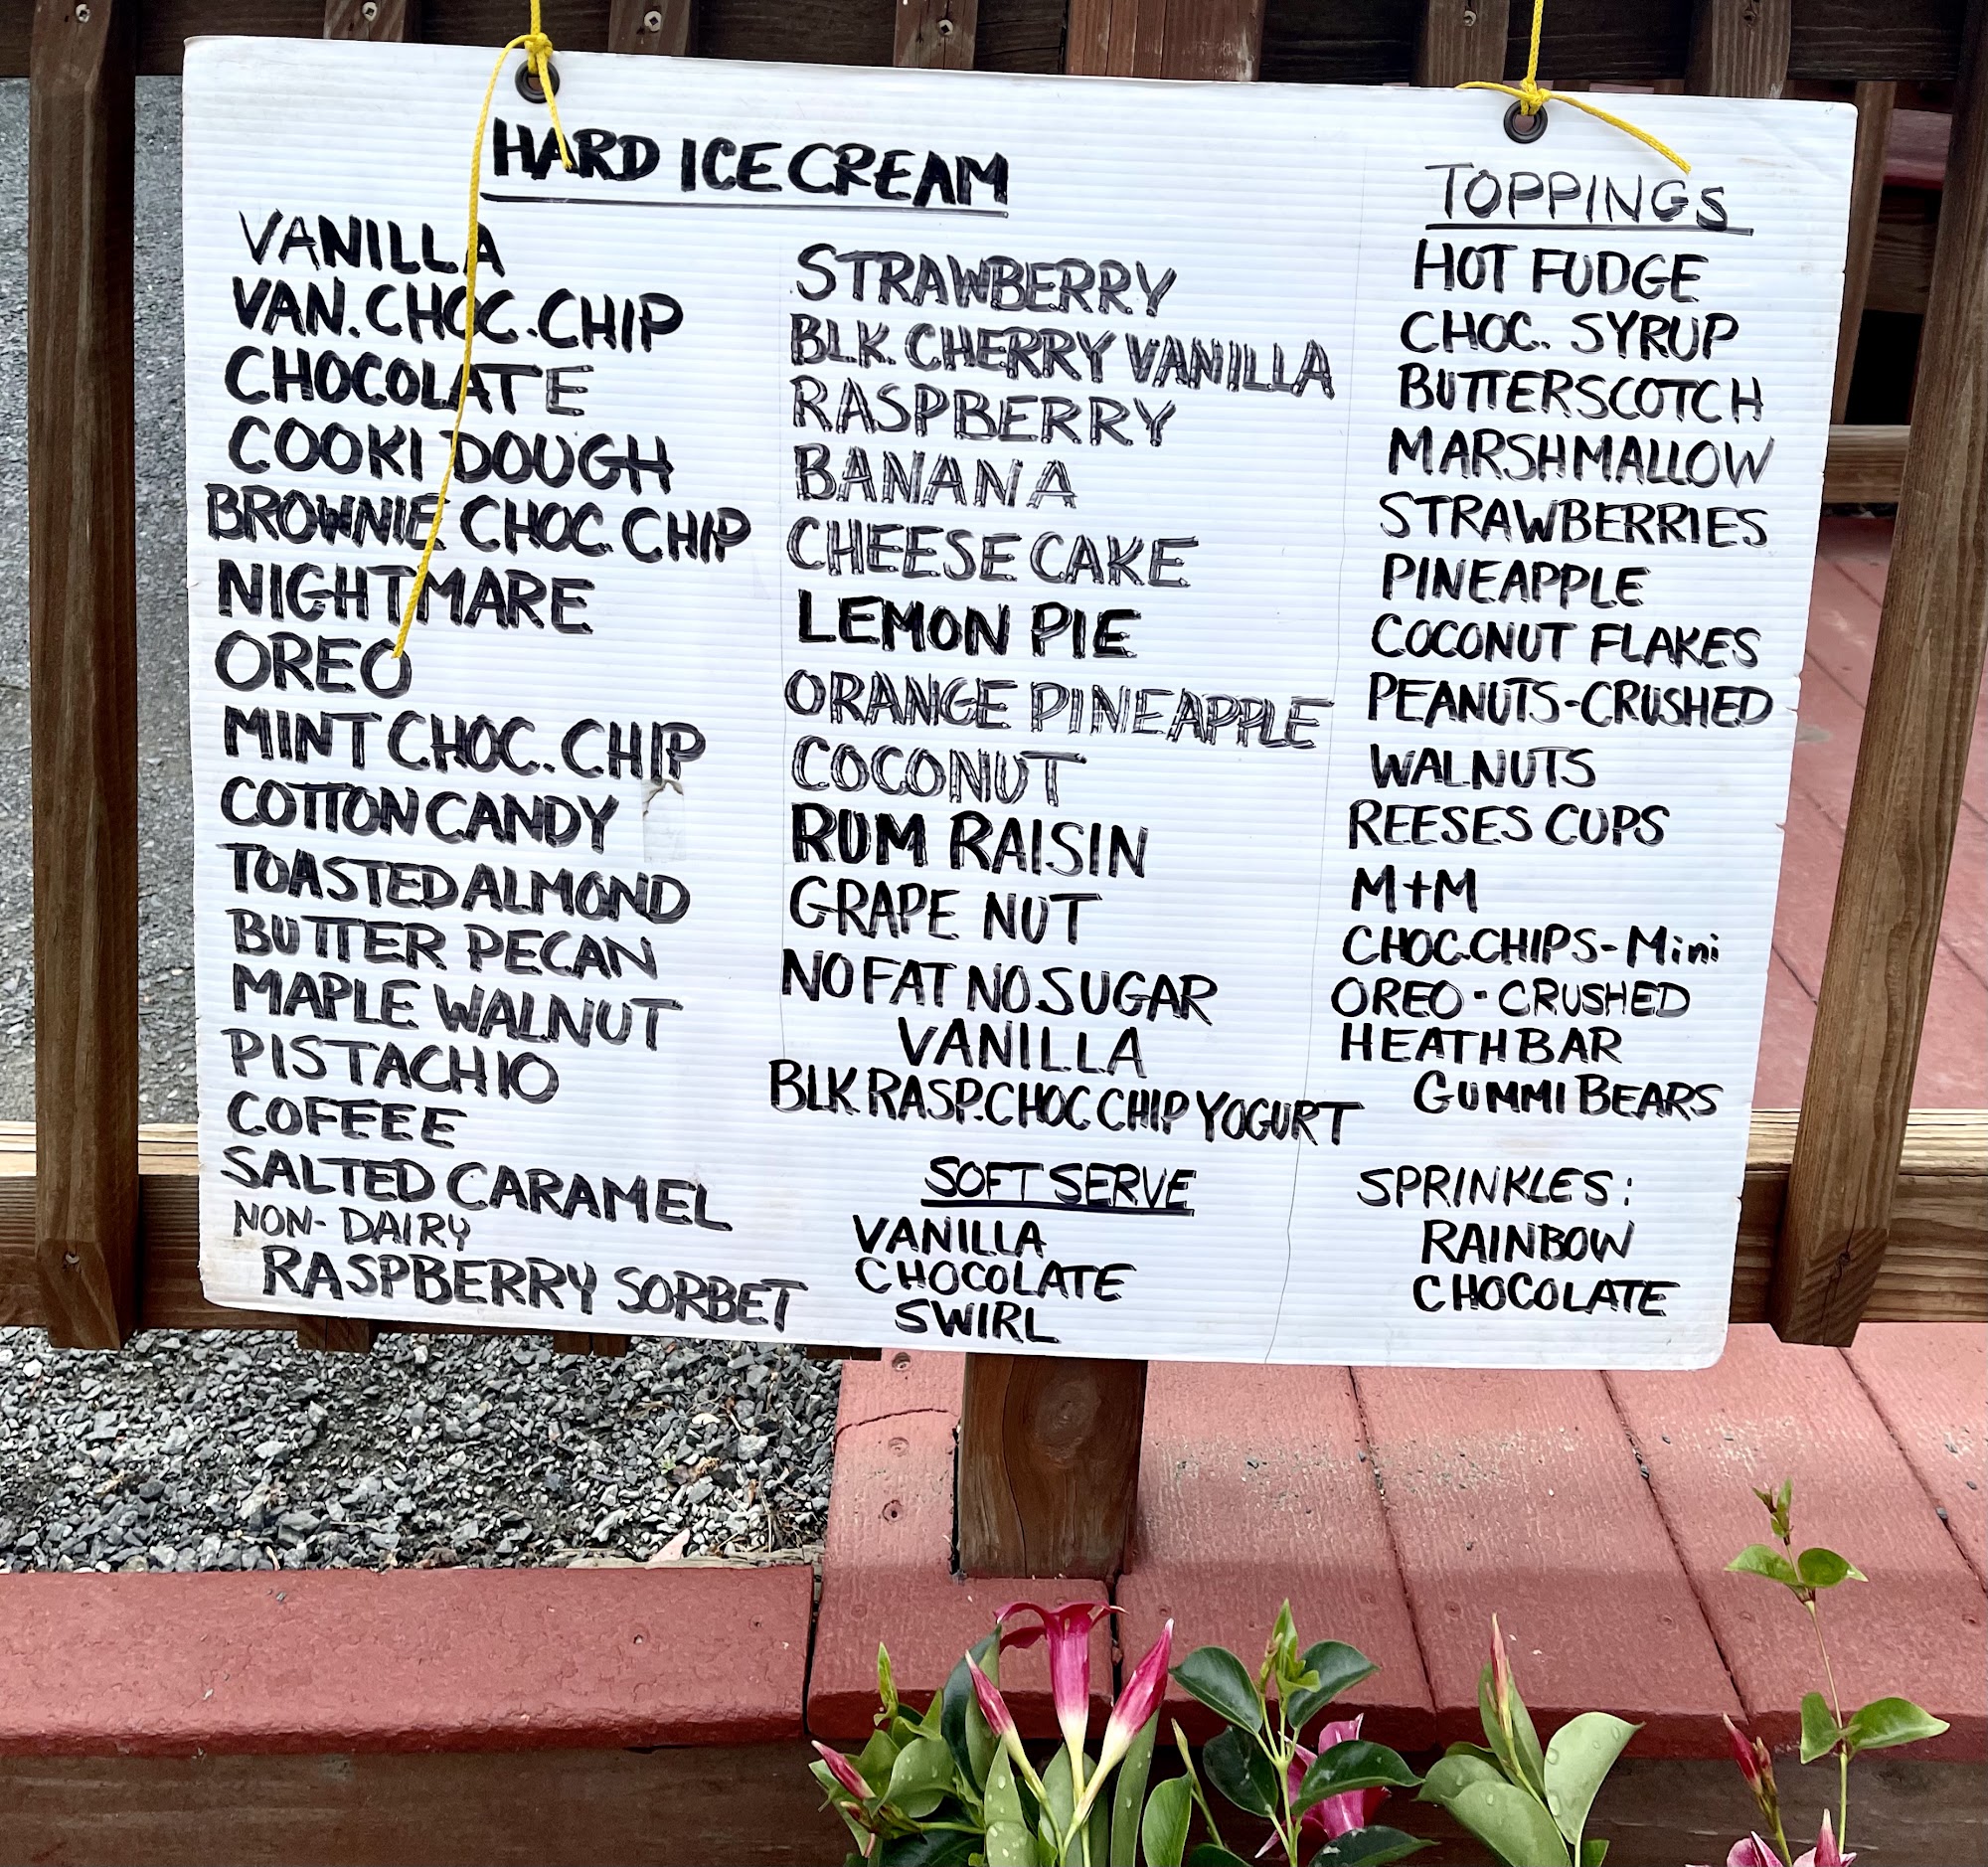 HARD ICE CREAM
VANILLA
VAN. CHOC. CHIP
CHOCOLATE
COOKI DOUGH
BROWNIE CHOC. CHIP
NIGHTMARE
OREO
MINT CHOC. CHIP
COTTON CANDY
TOASTED ALMOND
BUTTER PECAN
MAPLE WALNUT
PISTACHIO
COFFEE
SALTED CARAMEL
NON-DAIRY
RASPBERRY SORBET
STRAWBERRY
BLK. CHERRY VANILLA
RASPBERRY
BANANA
CHEESE CAKE
LEMON PIE
ORANGE PINEAPPLE
COCONUT
RUM RAISIN
GRAPE NUT
NO FAT NO SUGAR
VANILLA
BLK RASP. CHOC CHIP YOGURT
SOFT SERVE
VANILLA
CHOCOLATE
SWIRL
TOPPINGS
HOT FUDGE
CHOC. SYRUP
BUTTERSCOTCH
MARSHMALLOW
STRAWBERRIES
PINEAPPLE
COCONUT FLAKES
PEANUTS-CRUSHED
WALNUTS
REESES CUPS
M+M
CHOC.CHIPS-Mini
OREO-CRUSHED
HEATH BAR
GUMMI BEARS
SPRINKLES:
RAINBOW
CHOCOLATE